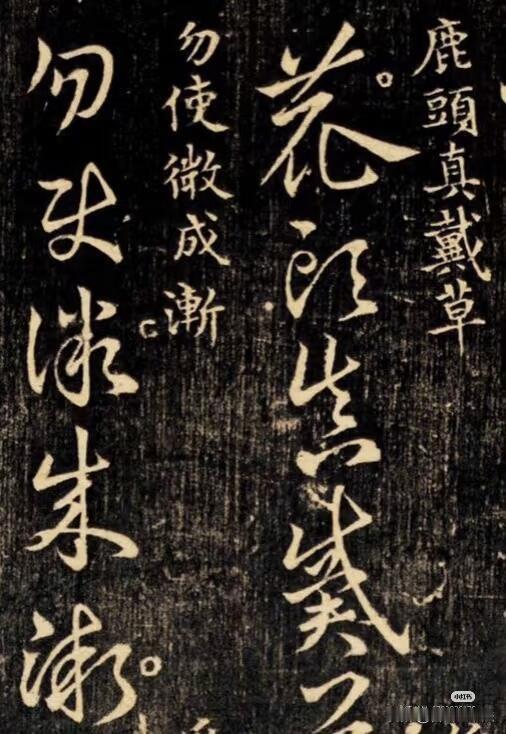 鹿頭真戴草
鹿頭真戴
勿使微成漸
勿使微成漸
小红书